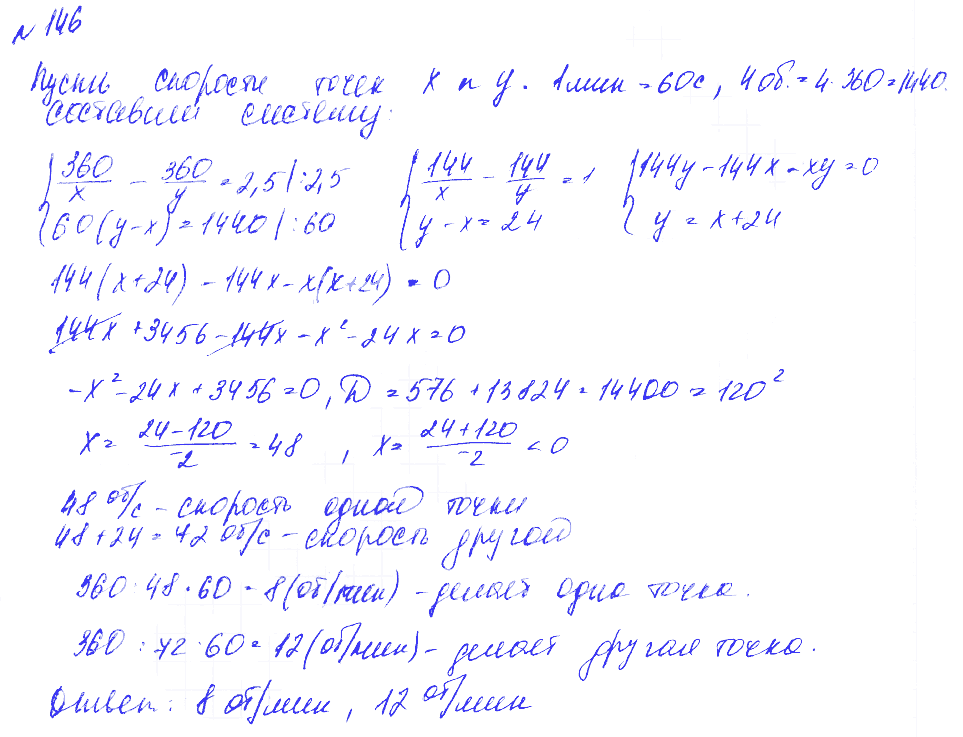 № 146
Пусть скорости точек x и y. 1 мин = 60с, 4 об. = 4·360=1440.
составим систему:
{ 360/x − 360/y = 2,5 |:2,5   { 144/x − 144/y = 1   { 144y − 144x − xy = 0
60(y−x) = 1440 |:60   y − x = 24   y = x+24
144(x+24) − 144x − x(x+24) = 0
144x + 3456 − 144x − x² − 24x = 0
−x² − 24x + 3456 = 0, D = 576 + 13824 = 14400 = 120²
x = (24−120)/−2 = 48, x = (24+120)/−2 < 0
48 об/с – скорость одной точки
48 + 24 = 72 об/с – скорость другой
360 : 48 · 60 = 8 (об/мин) – делает одна точка.
360 : 72 · 60 = 12 (об/мин) – делает другая точка.
Ответ: 8 об/мин, 12 об/мин